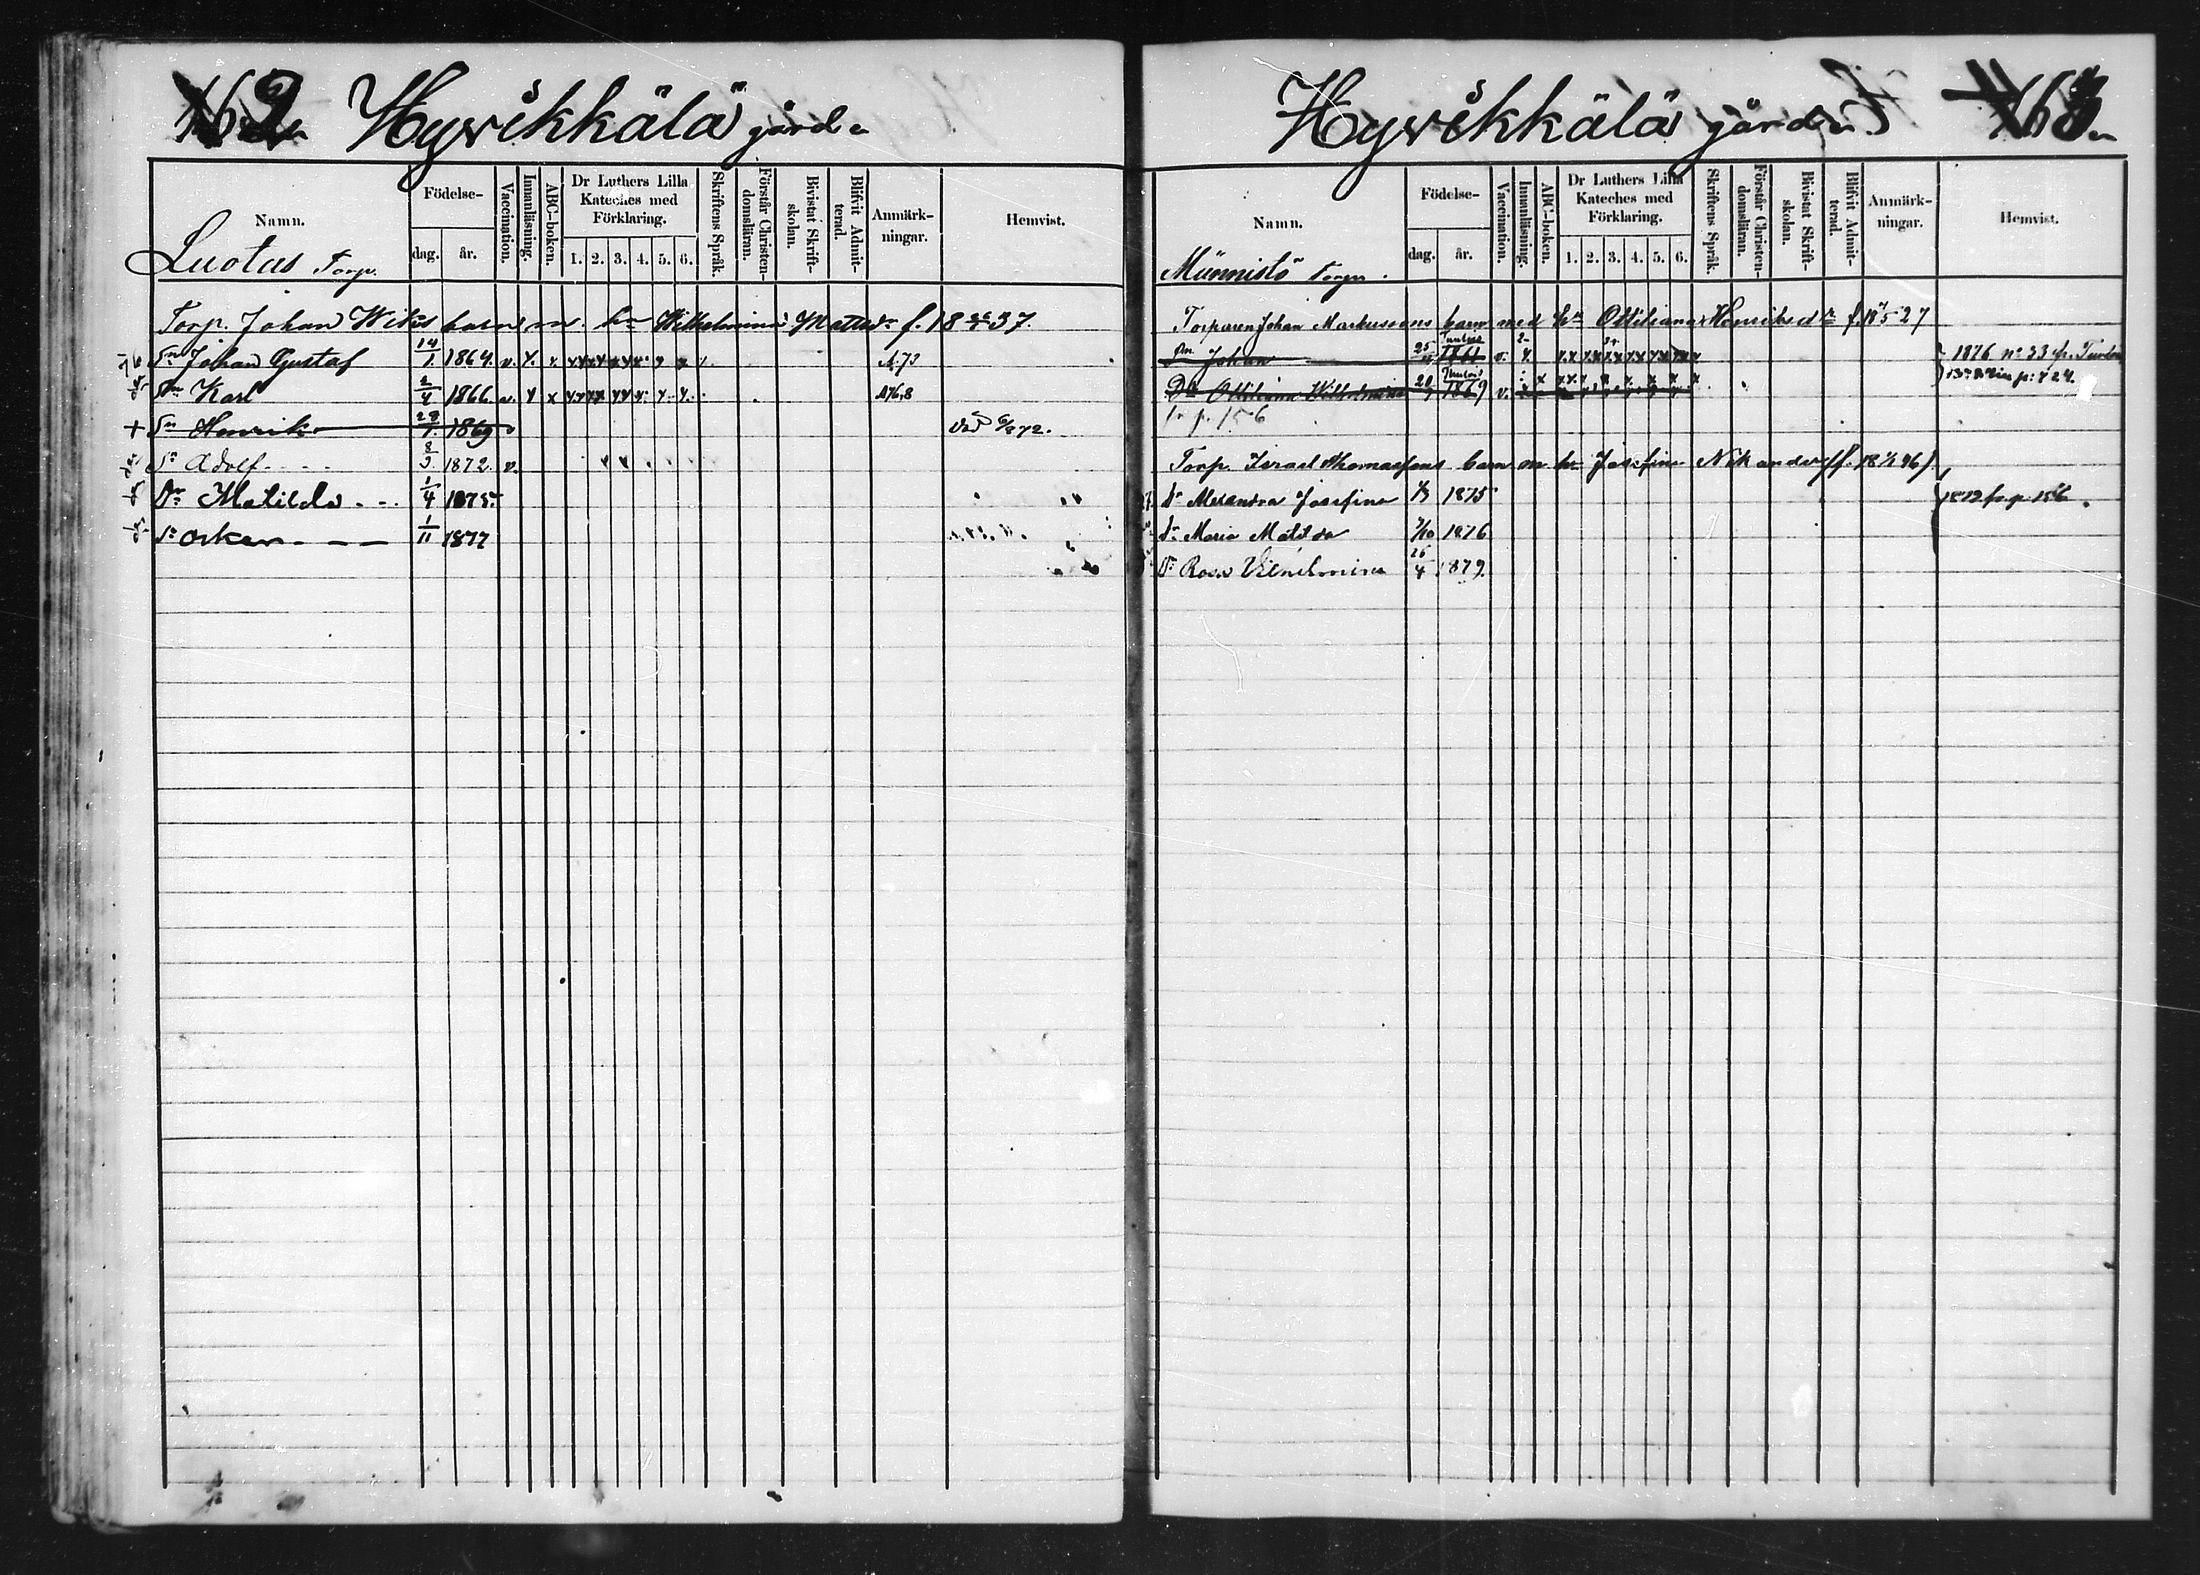 162 Hyvikkälä gård
Namn. Födelse- dag. år. Vaccination. Innanläsning. ABC-boken. Dr Luthers Lilla Kateches med Förklaring. 1. 2. 3. 4. 5. 6. Skriftens Språk. Förstår Christendomsläran. Bivistat Skriftskolan. Blifvit Admitterad. Anmärkningar. Hemvist.
Luotas Torp.
Torp. Johan Wikis barn m. hu Wilhelmina Mattsdr f. 18 37.
Sn Johan Gustaf 14/1 1864. v. A.73
Sn Karl 2/4 1866. v. A76,8
+ Sn Henrik 1869 Död 72.
Sn Adolf 8/3 1872. v.
Dr Matilda 1/4 1875.
Sn Oskar 1/11 1877
Hyvikkälä gård 163
Namn. Födelse- dag. år. Vaccination. Innanläsning. ABC-boken. Dr Luthers Lilla Kateches med Förklaring. 1. 2. 3. 4. 5. 6. Skriftens Språk. Förstår Christendomsläran. Bivistat Skriftskolan. Blifvit Admitterad. Anmärkningar. Hemvist.
Männistö Torp.
Torparen Johan Markussons barn med hu Ottiliana Henriksdr f. 27
Sn Johan 25 Tuulois 1861 v. 1876 no 33 fr. Tuulos
Dr Ottiliana Wilhelmina 20 Tuulois 1869 v. p: 724.
p. 156
Torp. Israel Thomassons barn m hu Josefina Nikander f. 18 46
Dr Alexandra Josefina 1/3 1875 p. 156
Dr Maria Matilda 1876
Dr Rosa Vilhelmina 26/4 1879.